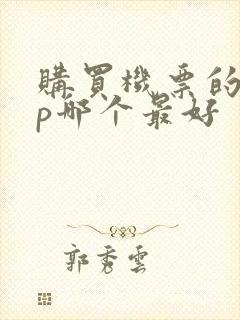 購買機票的
p哪个最好
郭秀雲